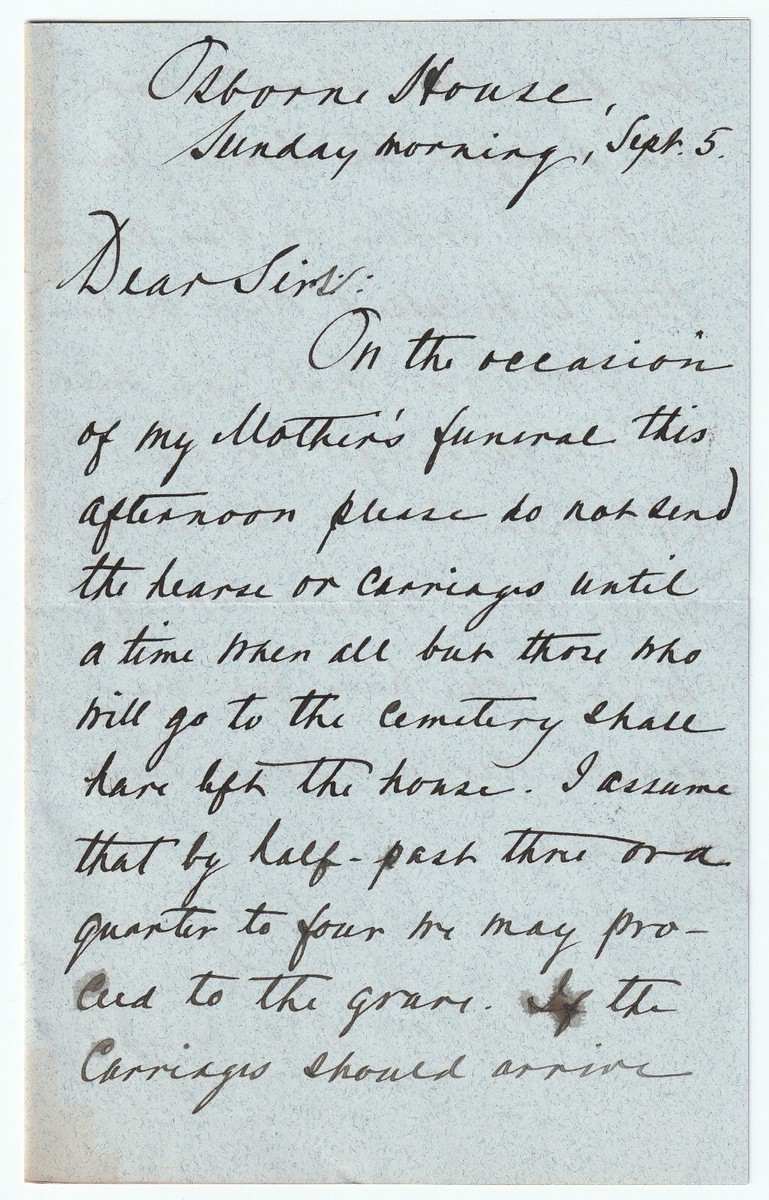 Osborne House,
Sunday morning, Sept. 5.
Dear Sirs:
On the occasion
of my Mother's funeral this
afternoon please do not send
the hearse or carriages until
a time when all but those who
will go to the cemetery shall
have left the house. I assume
that by half-past three or a
quarter to four we may pro-
ceed to the grave. If the
Carriages should arrive